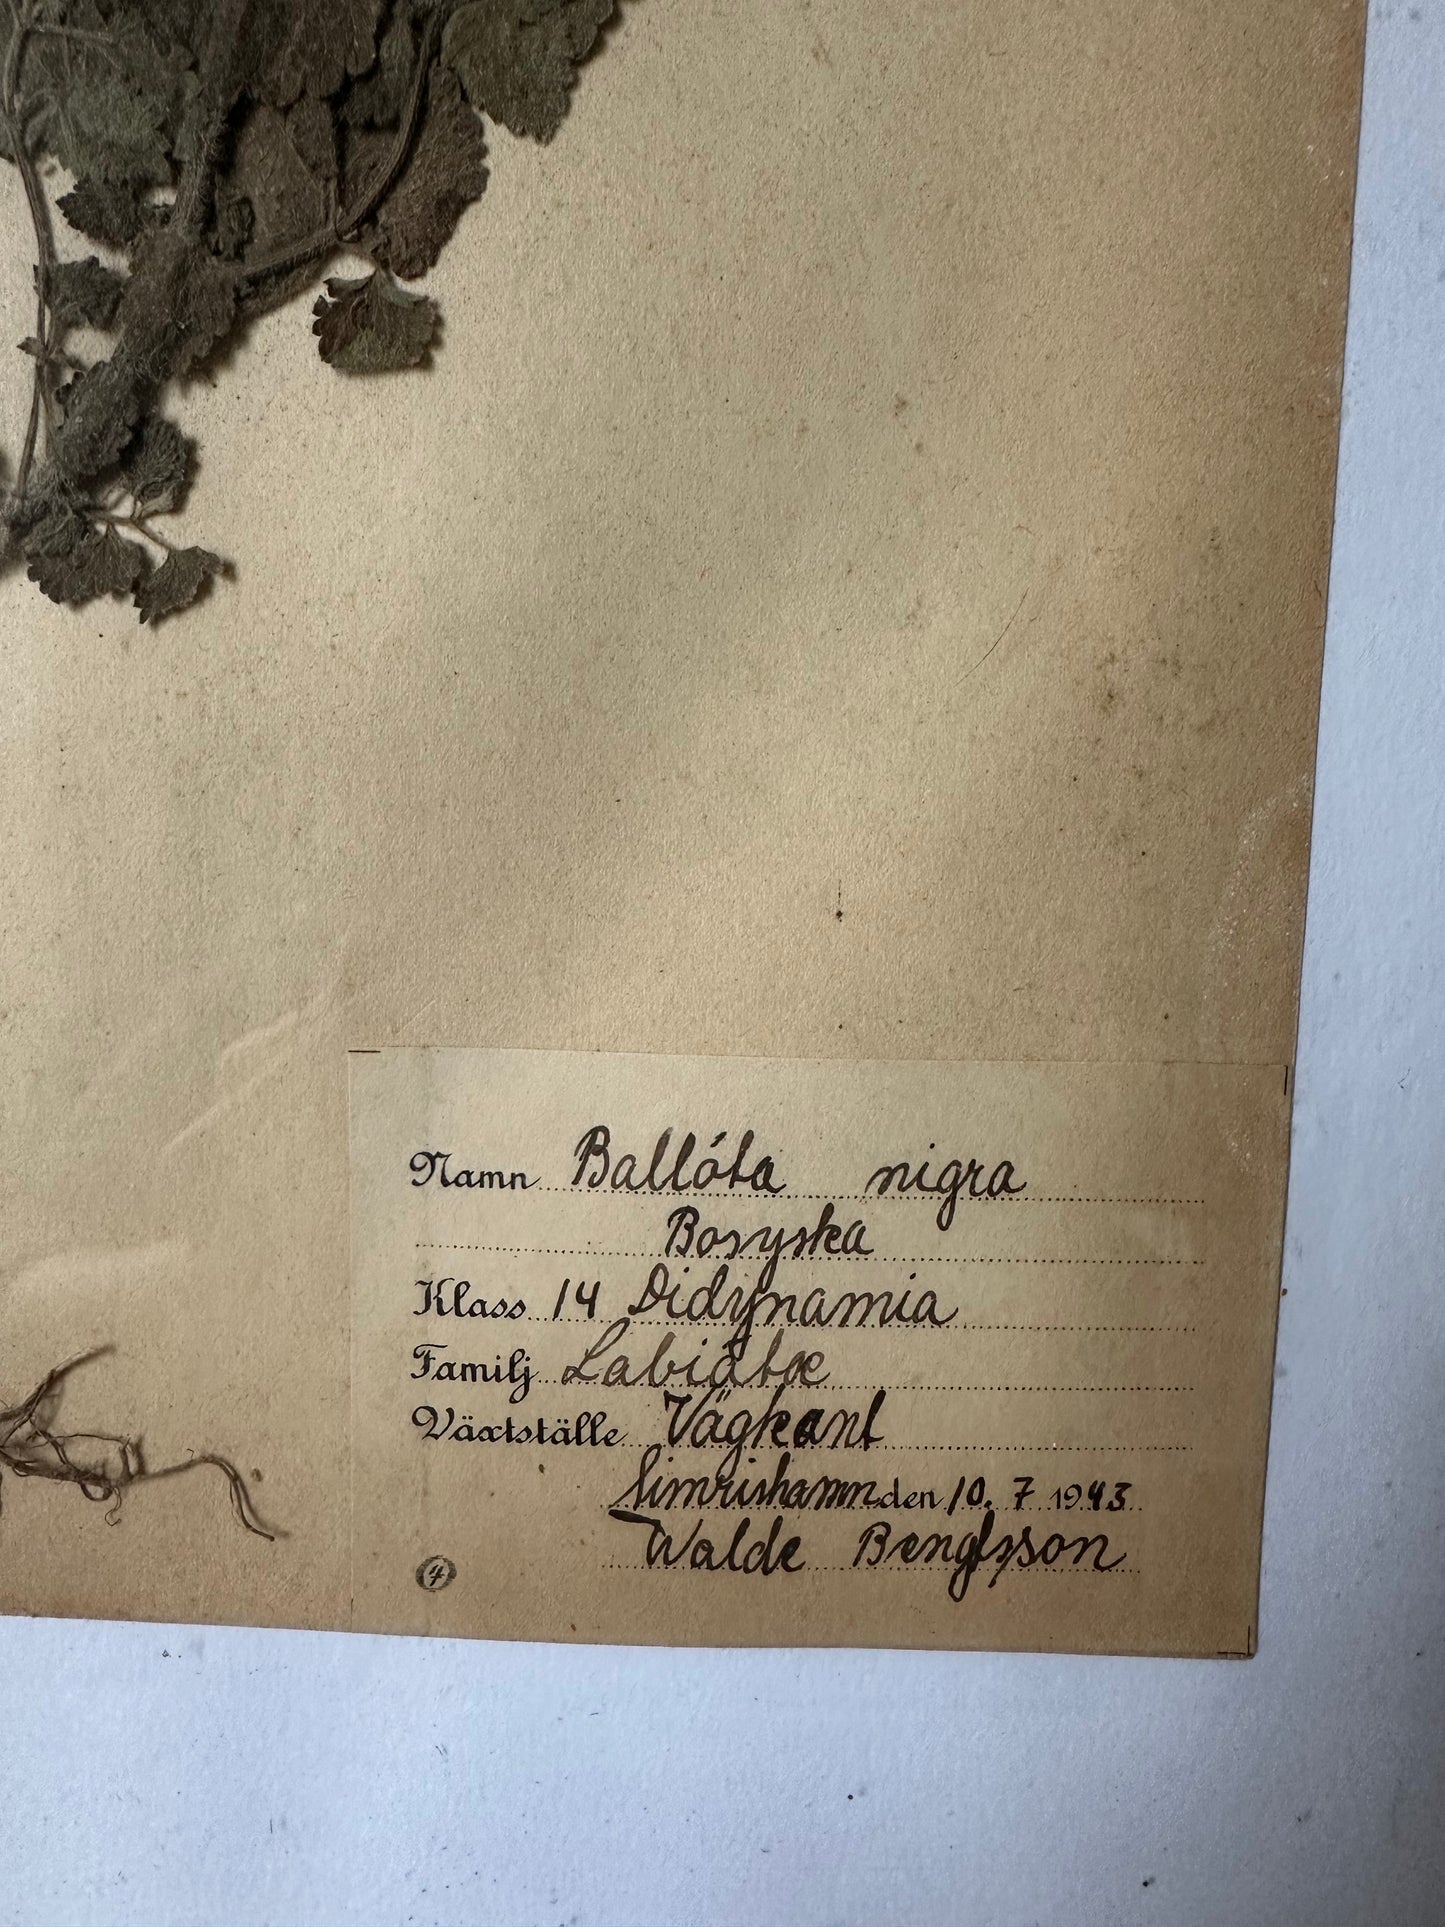 Namn Ballóta nigra
Bosyska
Klass 14 Didynamia
Familj Labiátæ
Växtställe Vägkant
Simrishamn den 10. 7 1943
Walde Bengtsson
4